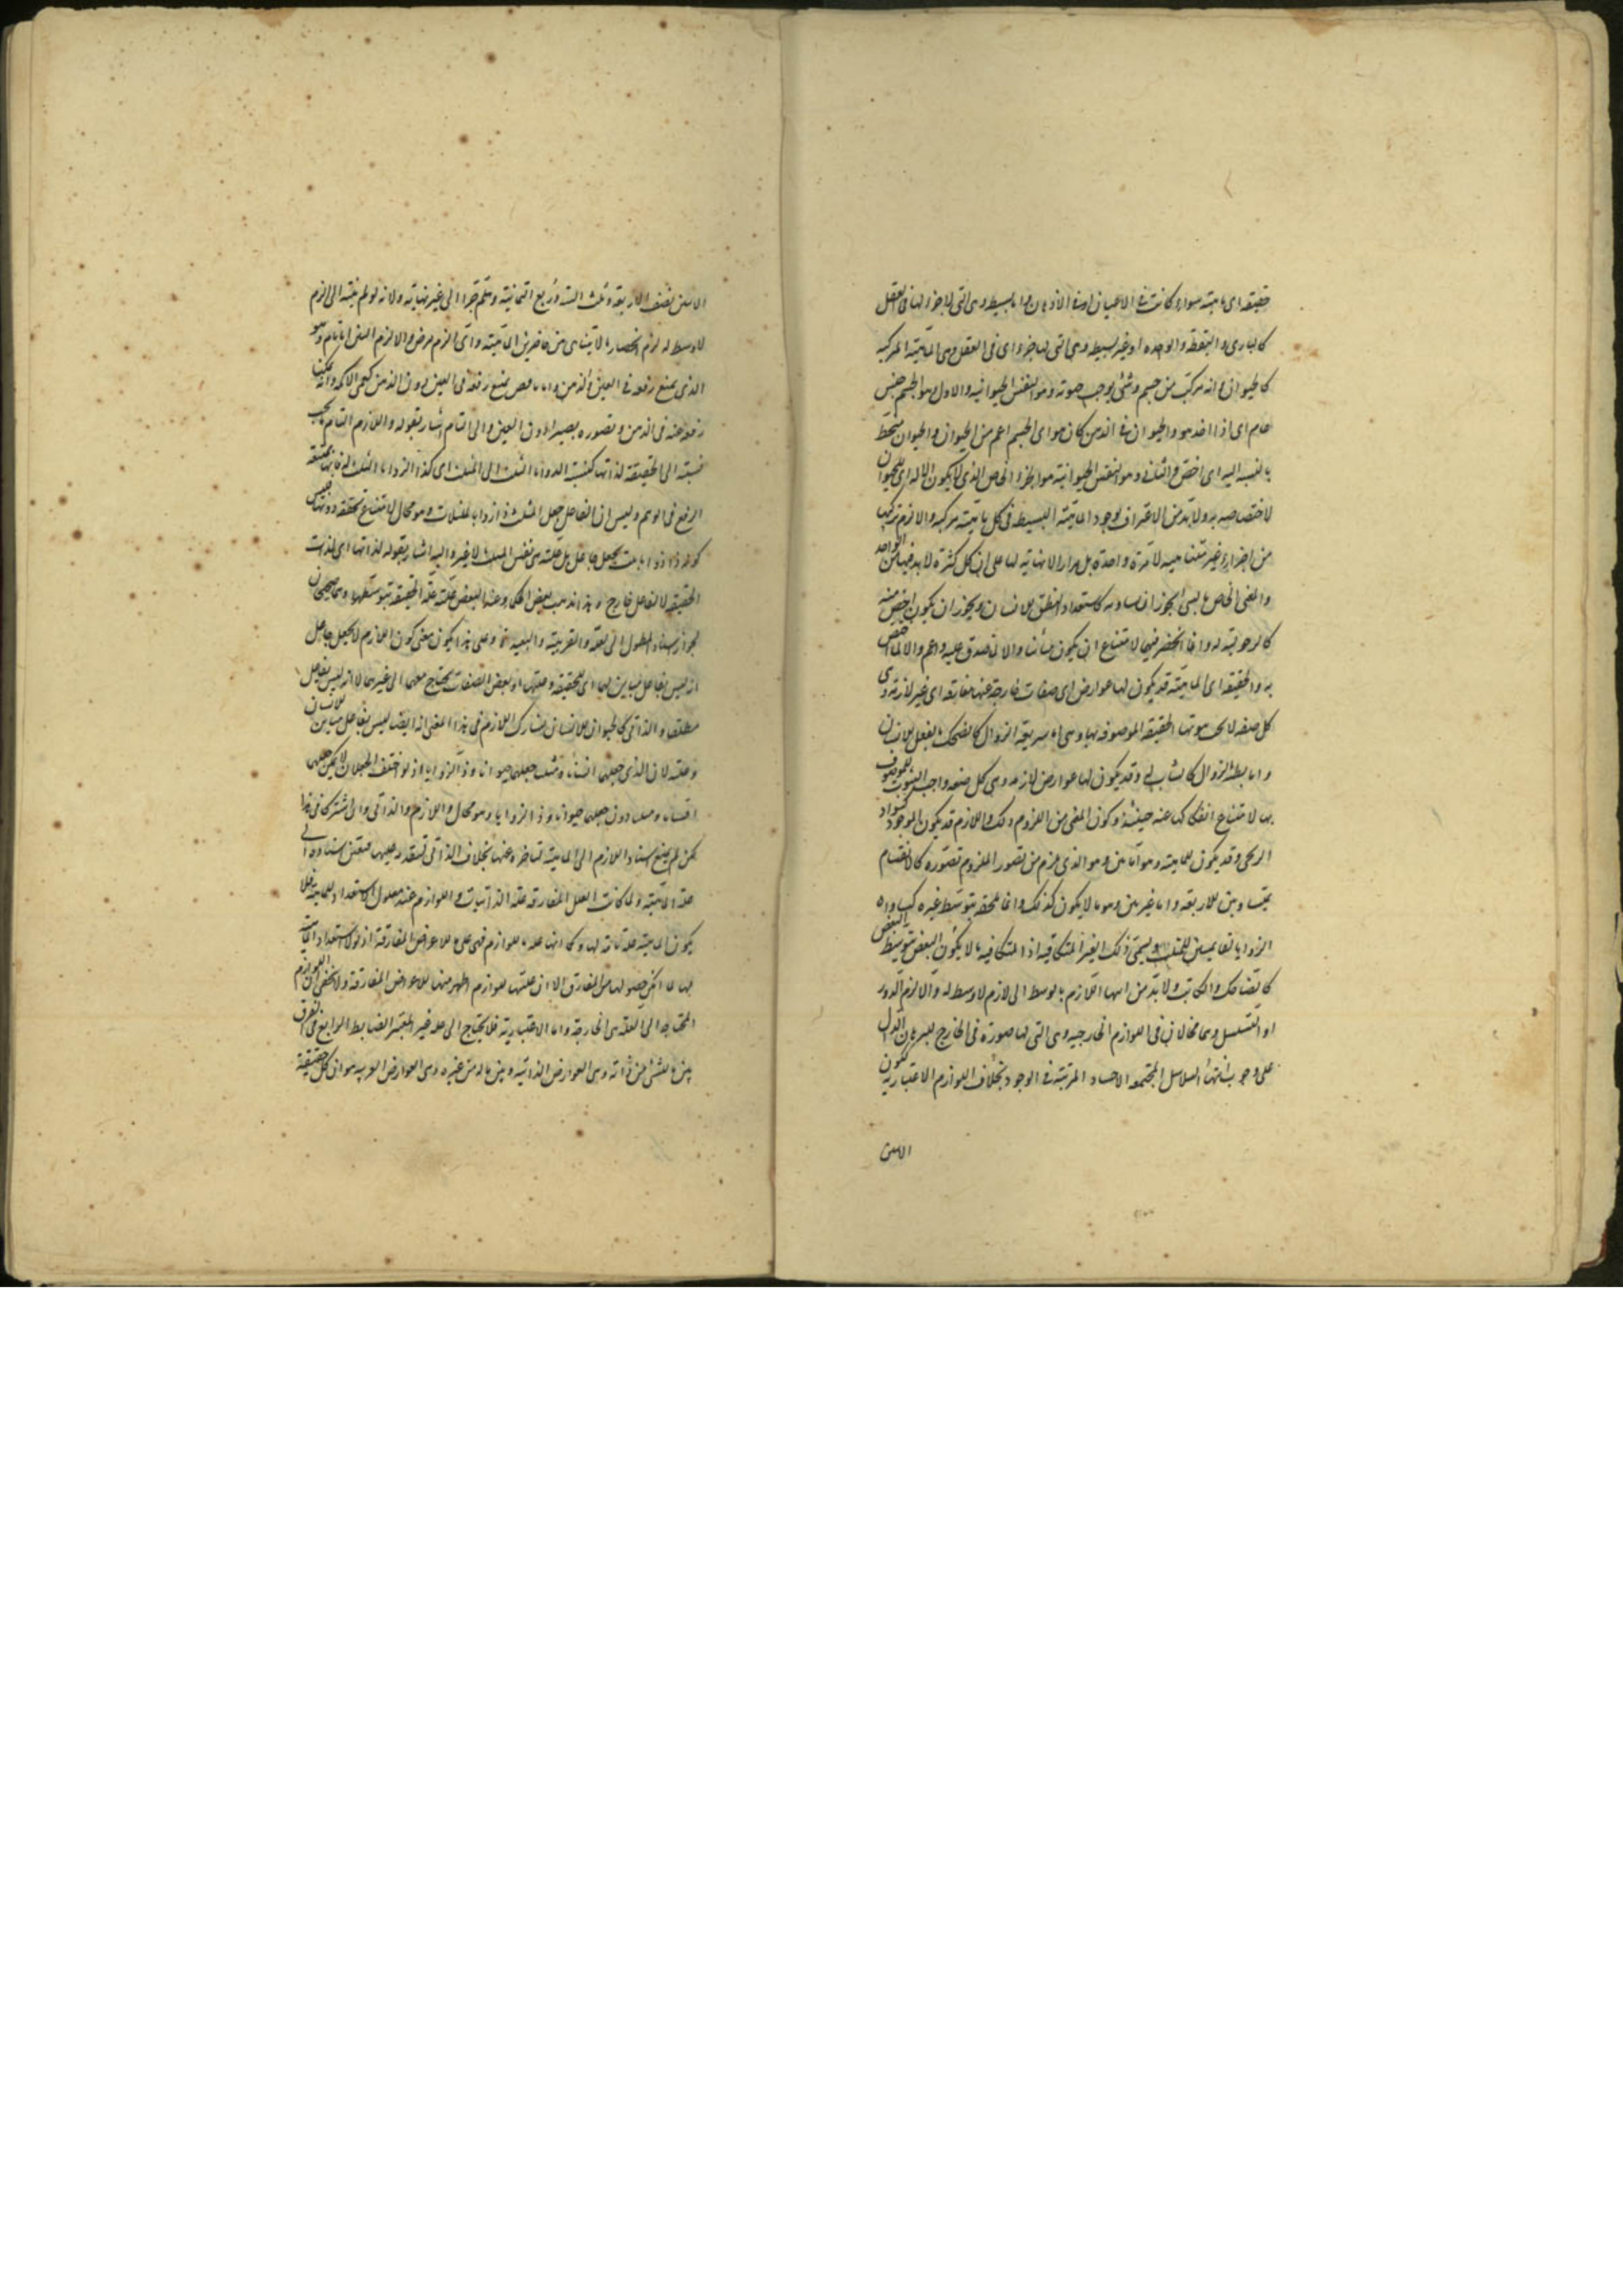 حقيقة اى ماهية سواء كانت فى الاعيان او فى الاذهان اما بسيطة وهى التى لا جزء لها فى العقل
كالبارى والنقطة والوحدة او غير بسيطة وهى التى لها جزء اى فى العقل وهى الماهية المركبة
كالحيوان فانه مركب من جسم وشئ يوجب حيوته وهو النفس الحيوانية والاول هو الجسم جنس
عام اى اذا اخذ هو والحيوان فى الذهن كان هو اى الجسم اعم من الحيوان والحيوان منحط
بالنسبة اليه اى اخص والثانى وهو النفس الحيوانية هو الجزء الخاص الذى لا يكون الا له اى للحيوان
لاختصاصه به ولا بد من الاعتراف بوجود الماهية البسيطة فى كل ماهية مركبة والا لزم تركبها
من اجزاء غير متناهية لا مرة واحدة بل مرارا لا نهاية لها على ان كل كثرة لا بد فيها من الواحد
والمعنى الخاص بالشئ يجوز ان يساويه كاستعداد النطق للانسان ويجوز ان يكون اخص منه
كالرجولية له وانما انحصر فيهما لامتناع ان يكون مباينا والا لما صدق عليه واعم والا لما اختص
به والحقيقة اى الماهية قد يكون لها عوارض اى صفات خارجة عنها مفارقة اى غير لازمة وهى
كل صفة لا يجب ثبوتها للحقيقة الموصوفة بها وهى اما سريعة الزوال كالضحك بالفعل للانسان
واما بطيئة الزوال كالشباب له وقد يكون لها عوارض لازمة وهى كل صفة واجب الثبوت للموصوف
بها لامتناع انفكاكها عنه حينئذ وكون المعنى من اللزوم ذلك واللازم قد يكون للوجود كسواد
الزنجى وقد يكون للماهية وهو اما بين وهو الذى يلزم من تصور الملزوم تصوره كالانقسام
بمتساويين للاربعة واما غير بين وهو ما لا يكون كذلك وانما يلحقه بتوسط غيره كمساواة
الزوايا لقائمتين للمثلث ويسمى ذلك الغير المتكافية اذ المتكافية ما لا يكون البعض بتوسط بالبعض
كالضاحك والكاتب ولا بد من انتهاء اللازم بالوسط الى لازم لا وسط له والا لزم الدور
او التسلسل وهما محالان فى اللوازم الخارجية وهى التى لها صورة فى الخارج للبرهان الدال
على وجوب انتهاء السلاسل المجتمعة الاحاد المترتبة فى الوجود بخلاف اللوازم الاعتبارية ككون
الاثنين
الاثنين نصف الاربعة وثلث الستة وربع الثمانية وهلم جرا الى غير نهاية ولانه لو لم ينته الى لازم
لا وسط له لزم انحصار ما لا يتناهى بين حاصرين الماهية واى لازم فرض واللازم البين اما تام وهو
الذى يمتنع رفعه فى العين والذهن واما ناقص يمتنع رفعه فى العين دون الذهن كعمى الاكمه وانه يمكننا
رفعه عنه فى الذهن وتصوره بصيرا دون العين والى التام اشار بقوله واللازم التام يجب
نسبته الى الحقيقة لذاتها كنسبة الزوايا الثلث الى المثلث اى كذا الزوايا الثلث له فانها ممتنعة
الرفع فى الوهم وليس ان الفاعل جعل المثلث ذا زوايا ثلث وهو محال لامتناع تحققه دونها فليس
كونه ذا زوايا ثلث بجعل جاعل بل علته هى نفس المثلث لا غير واليه اشار بقوله لذاتها اى لذات
الحقيقة لا لفاعل خارج وهذا مذهب بعض الحكماء وعند البعض علته علة الحقيقة بتوسطها وهما صحيحان
لجواز اسناد المعلول الى العلة القريبة والبعيدة وعلى هذا يكون معنى كون اللازم لا بجعل جاعل
انه ليس بفاعل مباين لها اى للحقيقة وعلتها او بعض الصفات يحتاج معها الى غيرهما لا انه ليس بفاعل
مطلقا والذاتى كالحيوان للانسان يشارك اللازم فى هذا المعنى انه ايضا ليس بفاعل مباين للانسان
وعلته لان الذى جعلهما انسانا ومثلثا جعلهما حيوانا وذا الزوايا اذ لو اختلف الجعلان لامكن جعلهما
انسانا ومثلثا دون جعلهما حيوانا وذا الزوايا وهو محال واللازم والذاتى وان اشتركا فى هذا
لكن لم يمتنع اسناد اللازم الى الماهية لتاخره عنها بخلاف الذاتى لتقدمه عليها فتعين اسناده الى
علة الماهية ولما كانت العلل المفارقة علة الذاتيات واللوازم عند معلول الاستعداد للماهية فلا
يكون الماهية علة تامة لها وكما انها علة ما للوازم فهى على للاعراض المفارقة اذ لولا استعداد الماهيات
لها لما امكن حصولها من المفارق الا ان علتها للوازم اظهر منها للاعراض المفارقة ولا يخفى ان اللوازم
المحتاجة الى العلة هى الخارجة واما الاعتبارية فلا يحتاج الى علة غير المعتبر الضابط الرابع فى الفرق
بين ما للشئ من ذاته وهى العوارض الذاتية وبين ما له من غيره وهى العوارض الغريبة هو ان كل حقيقة